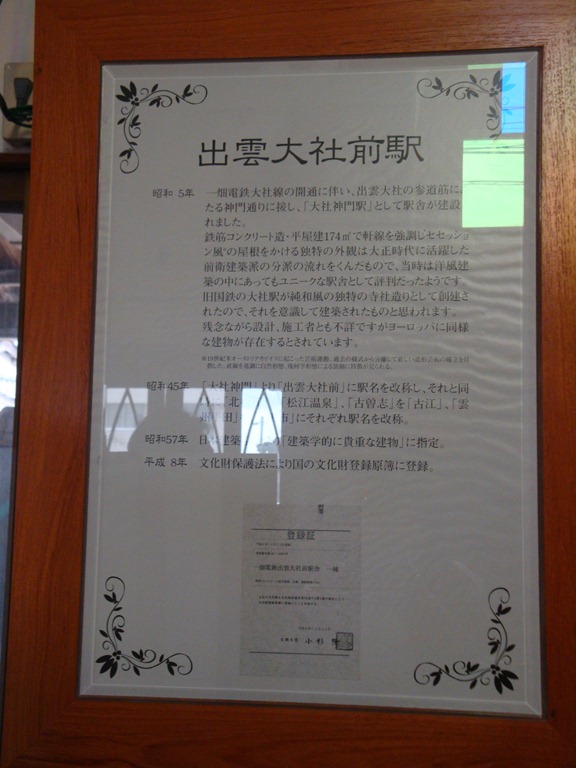 出雲大社前駅
昭和 5年 一畑電鉄大社線の開通に伴い、出雲大社の参道筋に
たる神門通りに接し、「大社神門駅」として駅舎が建設
れました。
鉄筋コンクリート造・平屋建174㎡で軒線を強調しセセッション
風※の屋根をかける独特の外観は大正時代に活躍した
前衛建築派の分派の流れをくんだもので、当時は洋風建
築の中にあってもユニークな駅舎として評判だったようです。
旧国鉄の大社駅が純和風の独特の寺社造りとして創建さ
れたので、それを意識して建築されたものと思われます。
残念ながら設計、施工者とも不詳ですがヨーロッパに同様
な建物が存在するとされています。
昭和45年 「大社神門」より「出雲大社前」に駅名を改称し、それと同
「北 「松江温泉」、「古曽志」を「古江」、「雲
田」 市」にそれぞれ駅名を改称。
昭和57年 日 建築 「建築学的に貴重な建物」に指定。
平成 8年 文化財保護法により国の文化財登録原簿に登録。
登録証
一畑電鉄出雲大社前駅舎 一棟
小杉